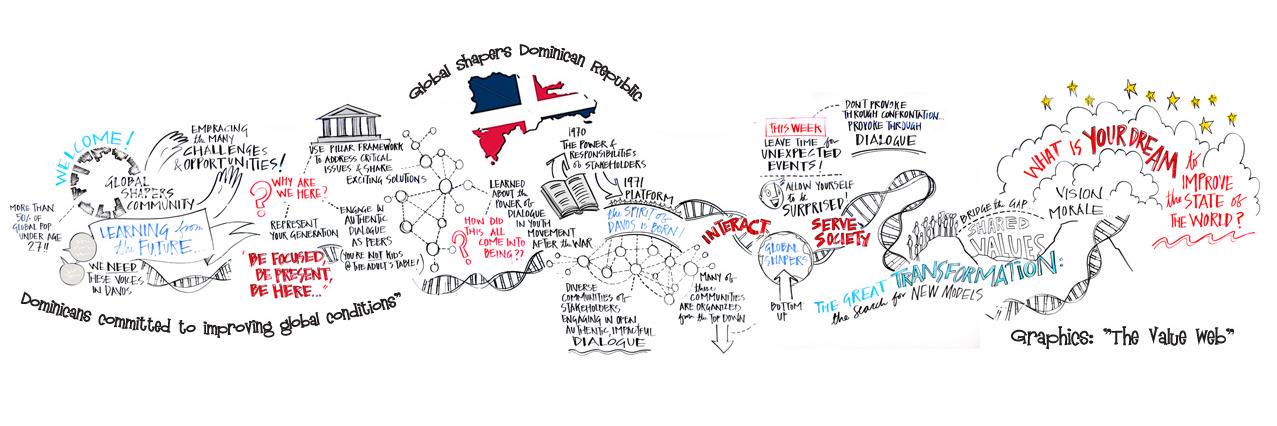 Global Shapers Dominican Republic
WELCOME!
GLOBAL
SHAPERS
COMMUNITY
EMBRACING
the MANY
CHALLENGES
& OPPORTUNITIES!
MORE THAN
50% OF
GLOBAL POP
UNDER AGE
27!!
LEARNING from
the FUTURE...
WE NEED
THESE VOICES
IN DAVOS
Dominicans committed to improving global conditions"
USE PILLAR FRAMEWORK
TO ADDRESS CRITICAL
ISSUES & SHARE
EXCITING SOLUTIONS
WHY ARE
WE HERE?
REPRESENT
YOUR GENERATION
ENGAGE IN
AUTHENTIC
DIALOGUE
AS PEERS
(YOU'RE NOT KIDS
@ THE ADULTS' TABLE!)
"BE FOCUSED,
BE PRESENT,
BE HERE..."
LEARNED
ABOUT the
POWER OF
DIALOGUE
IN YOUTH
MOVEMENT
AFTER the WAR
HOW DID
THIS ALL
COME INTO
BEING??
1970
THE POWER &
RESPONSIBILITIES
OF STAKEHOLDERS
1971
PLATFORM
the SPIRIT of
DAVOS IS BORN!
DIVERSE
COMMUNITIES of
STAKEHOLDERS
ENGAGING IN OPEN
AUTHENTIC, IMPACTFUL
DIALOGUE
INTERACT
MANY of
these
COMMUNITIES
ARE ORGANIZED
from the TOP DOWN
THIS WEEK
LEAVE TIME for
UNEXPECTED
EVENTS!
ALLOW YOURSELF
to be
SURPRISED!
DON'T PROVOKE
THROUGH CONFRONTATION...
PROVOKE THROUGH
DIALOGUE
GLOBAL
SHAPERS
BOTTOM
UP
SERVE
SOCIETY
THE GREAT TRANSFORMATION:
the search for NEW MODELS
BRIDGE the GAP
SHARED
VALUES
VISION
MORALE
WHAT IS YOUR DREAM to
IMPROVE
the STATE of
THE WORLD?
Graphics: "The Value Web"